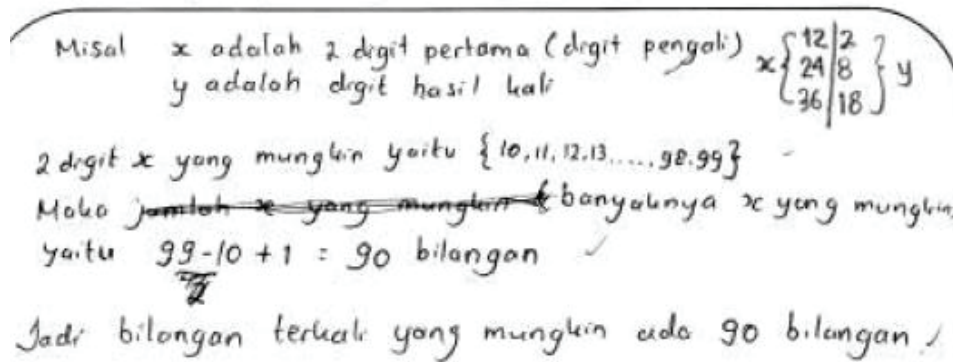 Misal x adalah 2 digit pertama (digit pengali) x { 12 | 2
24 | 8
36 | 18 } y
y adalah digit hasil kali
2 digit x yang mungkin yaitu {10, 11, 12, 13, ...., 98.99}
Maka jumlah x yang mungkin { banyaknya x yang mungkin,
yaitu 99-10 + 1 = 90 bilangan ✓
2
Jadi bilangan terkali yang mungkin ada 90 bilangan.